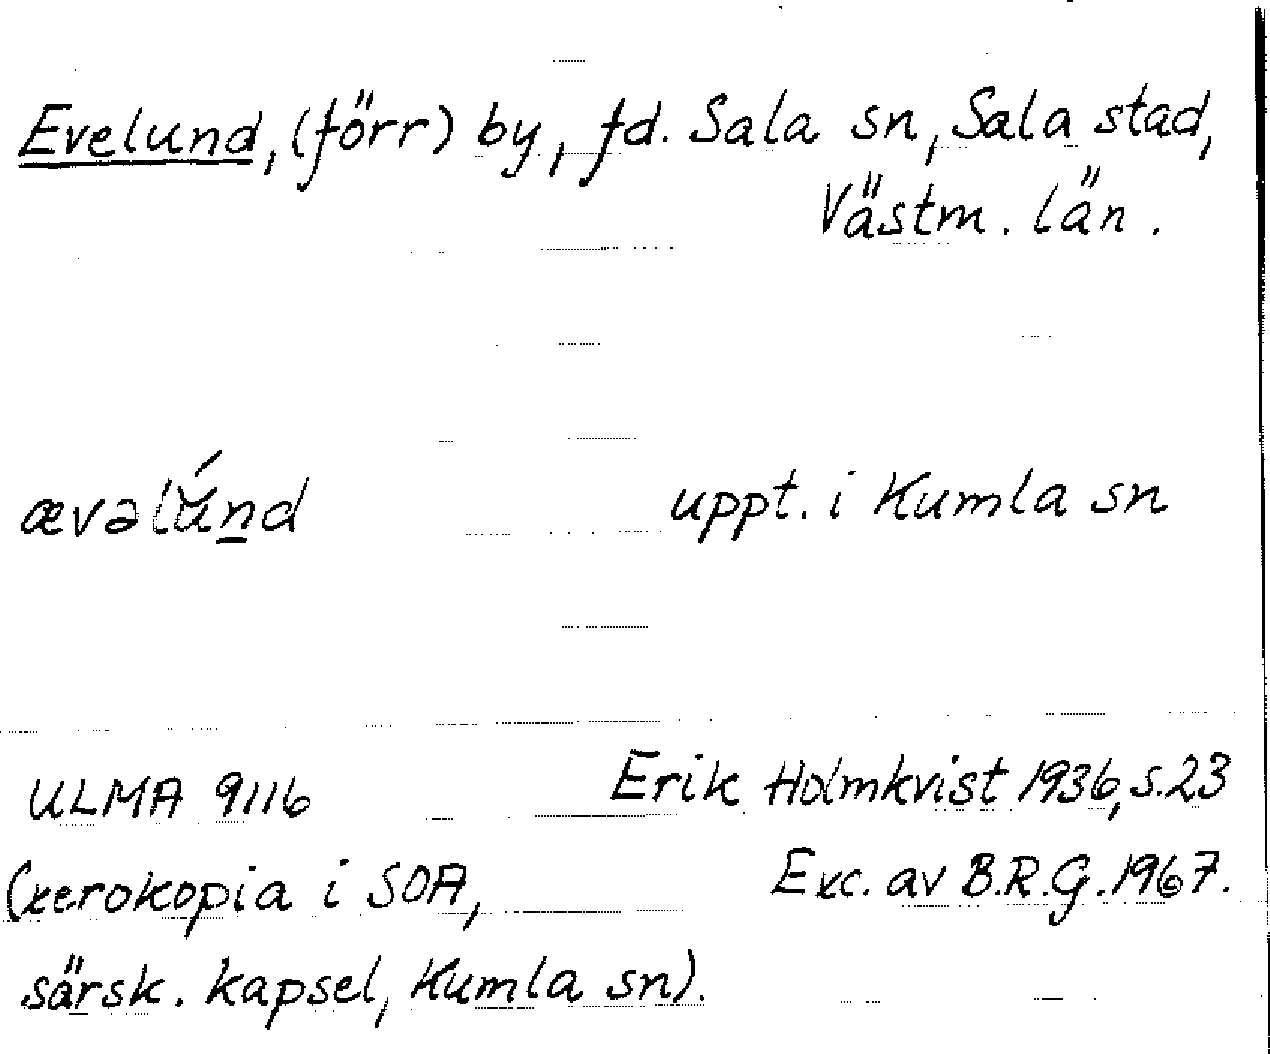 Evelund, (förr) by, fd. Sala sn, Sala stad,
Västm. län.
ævəlúnd uppt. i Kumla sn
ULMA 9116 Erik Holmkvist 1936, s. 23
(xerokopia i SOA, Exc. av B.R.G. 1967.
särsk. kapsel, Kumla sn).